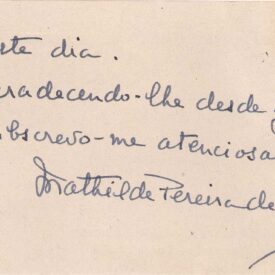 ste dia.
radecendo-lhe desde j
bscrevo-me atenciosa
Mathilde Pereira de